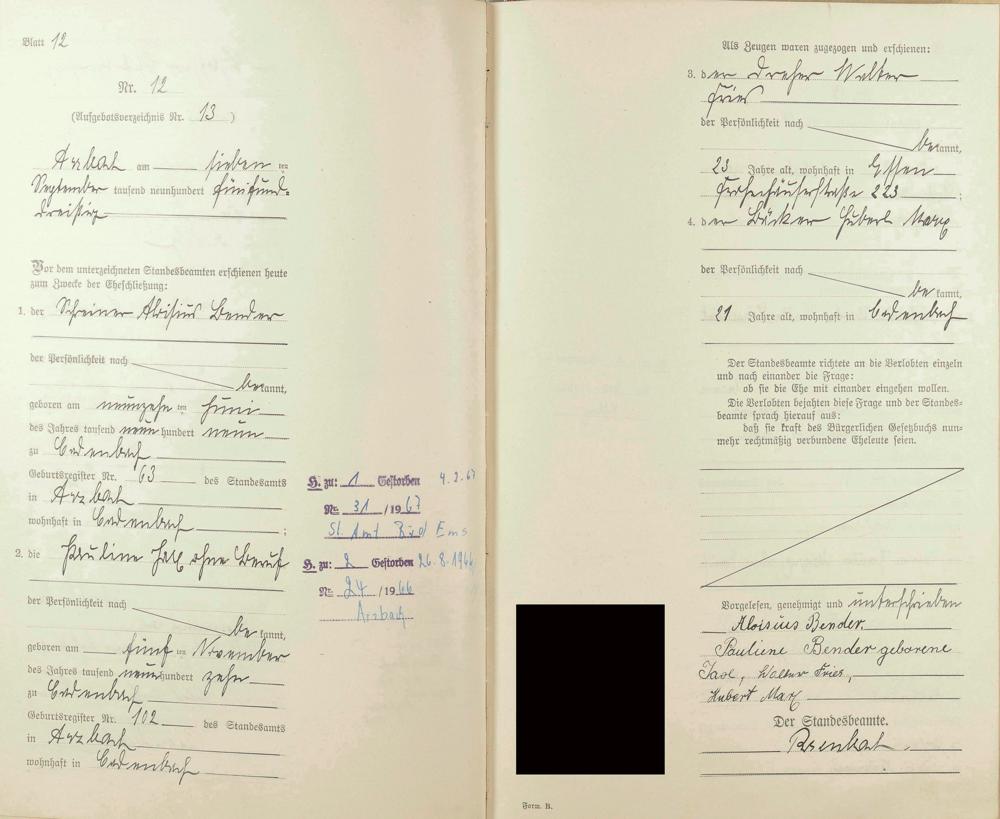 Blatt 12
Nr. 12
(Aufgebotsverzeichnis Nr. 13)
Arzbach am sieben ten
September tausend neunhundert fünfund-
dreißig
Vor dem unterzeichneten Standesbeamten erschienen heute
zum Zwecke der Eheschließung:
1. der Schreiner Aloisius Bender
der Persönlichkeit nach
bekannt,
geboren am neunzehn ten Juni
des Jahres tausend neunhundert neun
zu Cadenbach
Geburtsregister Nr. 63 des Standesamts
in Arzbach
wohnhaft in Cadenbach ;
2. die Pauline ohne Beruf
der Persönlichkeit nach
bekannt,
geboren am fünf ten November
des Jahres tausend neunhundert zehn
zu Cadenbach
Geburtsregister Nr. 102 des Standesamts
in Arzbach
wohnhaft in Cadenbach
H. zu: 1 Gestorben 4.2.67
Nr. 31 /1967
St. Amt Bad Ems
H. zu: 2 Gestorben 26.8.1966
Nr. 24 /1966
Arzbach
Als Zeugen waren zugezogen und erschienen:
3. der Dreher Walter
Fries
der Persönlichkeit nach
bekannt,
23 Jahre alt, wohnhaft in Essen
223 ;
4. der Bäcker Hubert Marx
der Persönlichkeit nach
bekannt,
21 Jahre alt, wohnhaft in Cadenbach
Der Standesbeamte richtete an die Verlobten einzeln
und nach einander die Frage:
ob sie die Ehe mit einander eingehen wollen.
Die Verlobten bejahten diese Frage und der Standes-
beamte sprach hierauf aus:
daß sie kraft des Bürgerlichen Gesetzbuchs nun-
mehr rechtmäßig verbundene Eheleute seien.
Vorgelesen, genehmigt und unterschrieben
Aloisius Bender.
Pauliene Bender geborene
Walter Fries,
Hubert Marx
Der Standesbeamte.
Form. B.